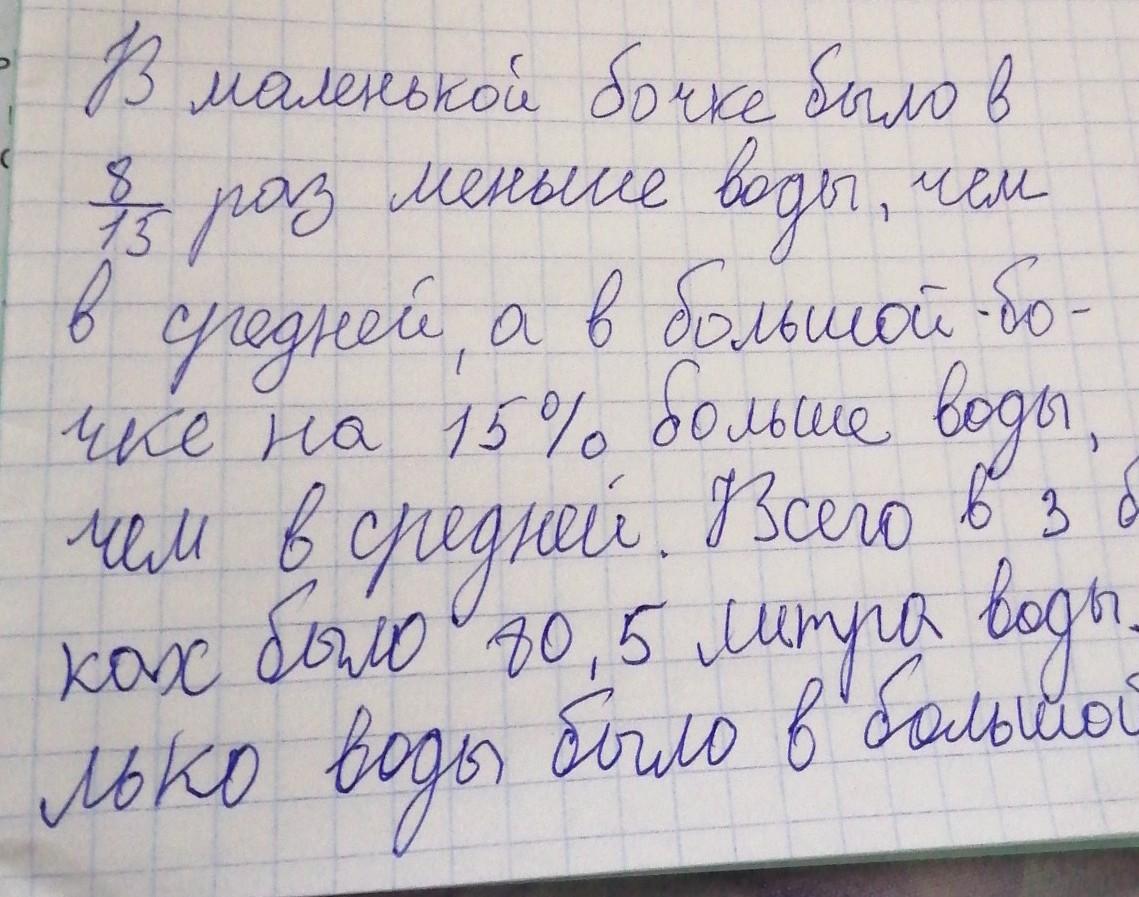 В маленькой бочке было в
8/15 раз меньше воды, чем
в средней, а в большой бо-
чке на 15% больше воды,
чем в средней. Всего в 3 б
ках было 80,5 литра воды.
лько воды было в большой